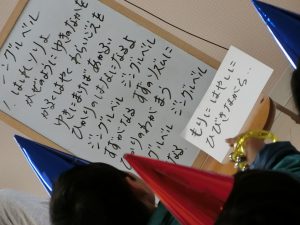 ジングルベル
1.はしれ そりよ
かぜのように ゆきのなかを
かるく はやく わらいごえを
ゆきに まけば あかるい
ひかりの はなになるよ
ジングルベル ジングルベル
すずがなる すずのリズムに
ひかりのわがまう
ジングルベル ジングルベル
すずがなる
もりに はやしに
ひびきながら…